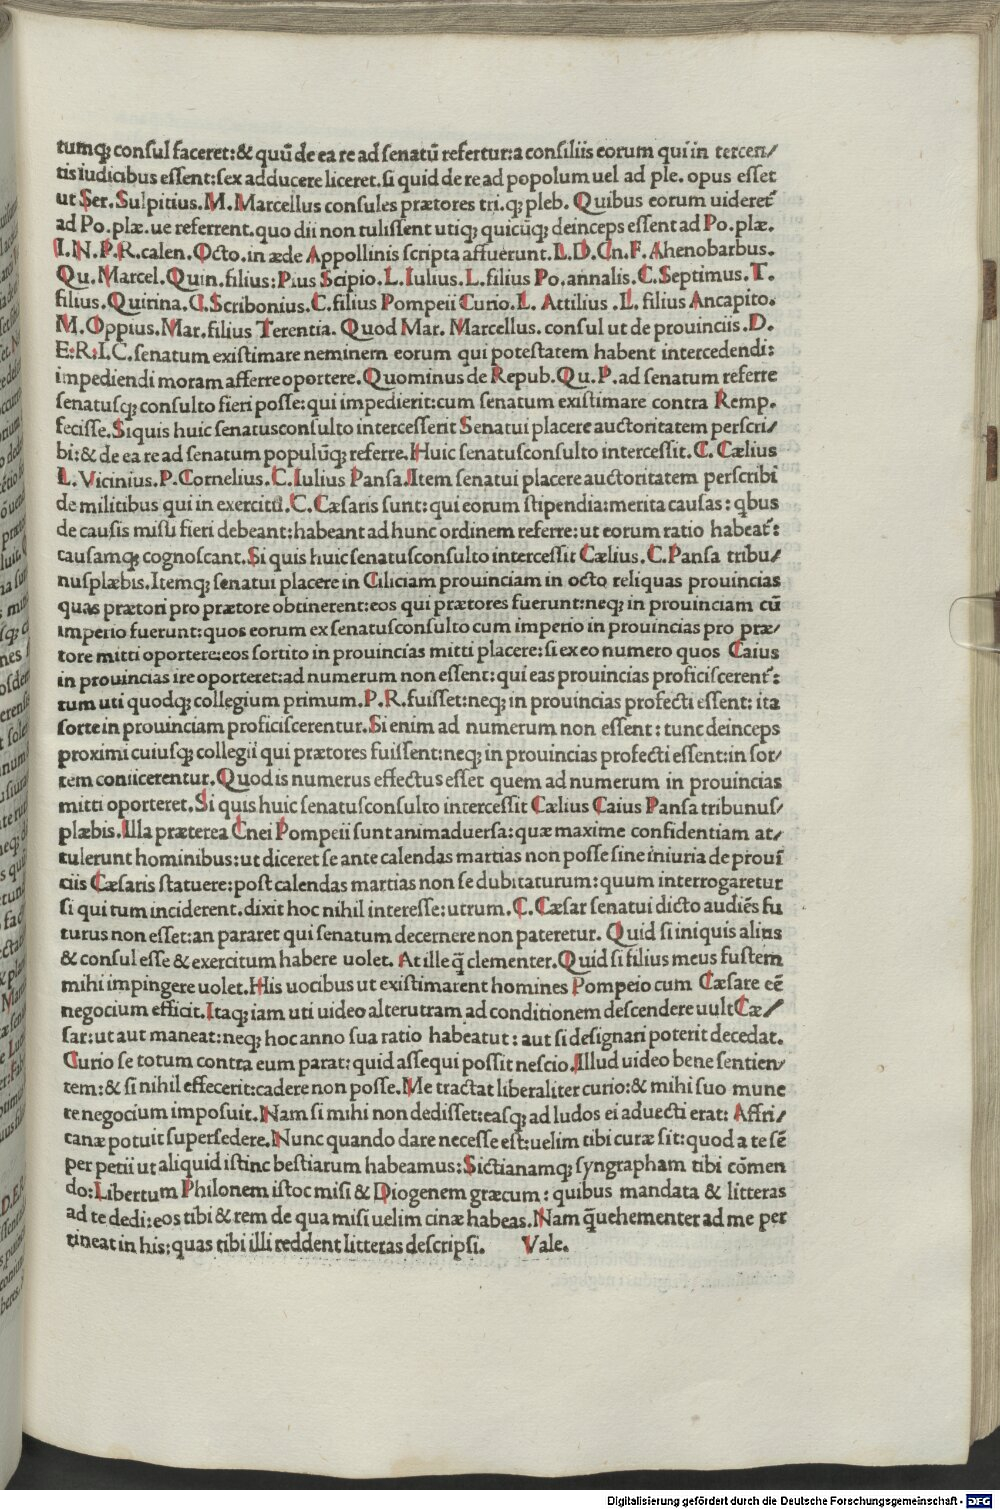 tumq; conſul faceret:& quū de ea re ad ſenatū refertur:a conſiliis eorum qui in tercen/
tis iudicibus eſſent:ſex adducere liceret.ſi quid de re ad popolum uel ad ple. opus eſſet
ut Ser. Sulpitius. M. Marcellus conſules prætores tri.q; pleb. Quibus eorum uideret̄
ad Po.plæ.ue referrent.quo dii non tuliſſent utiq; quicūq; deinceps eſſent ad Po.plæ.
I.N.P.R.calen.Octo.in æde Appollinis ſcripta affuerunt.L.D.Cn.F.Ahenobarbus.
Qu.Marcel.Quin.filius:Pius Scipio.L.Iulius.L.filius Po.annalis.C.Septimus.T.
filius.Quirina.C.Scribonius.C.filius Pompeii Curio.L. Attilius .L. filius Ancapito.
M.Oppius.Mar.filius Terentia. Quod Mar. Marcellus. conſul ut de prouinciis .D.
E.R.I.C.ſenatum exiſtimare neminem eorum qui poteſtatem habent intercedendi:
impediendi moram afferre oportere.Quominus de Repub.Qu.P.ad ſenatum referre
ſenatuſq; conſulto fieri poſſe:qui impedierit:cum ſenatum exiſtimare contra Remp.
feciſſe.Siquis huic ſenatusconſulto interceſſerit Senatui placere auctoritatem perſcri/
bi:& de ea re ad ſenatum populūq; referre.Huic ſenatuſconſulto interceſſit.C. Cælius
L. Vicinius.P.Cornelius.C.Iulius Panſa.Item ſenatui placere auctoritatem perſcribi
de militibus qui in exercitu.C.Cæſaris ſunt:qui eorum ſtipendia:merita cauſas: qbus
de cauſis miſu fieri debeant:habeant ad hunc ordinem referre:ut eorum ratio habeat̄:
cauſamq; cognoſcant.Si quis huic ſenatuſconſulto interceſſit Cælius.C.Panſa tribu/
nuſplæbis.Itemq; ſenatui placere in Ciliciam prouinciam in octo reliquas prouincias
quas prætori pro prætore obtinerent:eos qui prætores fuerunt:neq; in prouinciam cū
imperio fuerunt:quos eorum ex ſenatuſconſulto cum imperio in prouincias pro præ/
tore mitti oportere:eos ſortito in prouincias mitti placere:ſi ex eo numero quos Caius
in prouincias ire oporteret:ad numerum non eſſent:qui eas prouincias proficiſcerent̄:
tum uti quodq; collegium primum.P.R.fuiſſet:neq; in prouincias profecti eſſent: ita
ſorte in prouinciam proficiſcerentur.Si enim ad numerum non eſſent: tunc deinceps
proximi cuiuſq; collegii qui prætores fuiſſent:neq; in prouincias profecti eſſent:in ſor/
tem coniicerentur.Quod is numerus effectus eſſet quem ad numerum in prouincias
mitti oporteret.Si quis huic ſenatuſconſulto interceſſit Cælius Caius Panſa tribunuſ/
plæbis.Illa præterea Cnei Pompeii ſunt animaduerſa:quæ maxime confidentiam at/
tulerunt hominibus:ut diceret ſe ante calendas martias non poſſe ſine iniuria de prouī
ciis Cæſaris ſtatuere:poſt calendas martias non ſe dubitaturum:quum interrogaretur
ſi qui tum inciderent.dixit hoc nihil intereſſe:utrum.C.Cæſar ſenatui dicto audiēs fu
turus non eſſet:an pararet qui ſenatum decernere non pateretur. Quid ſi iniquis alius
& conſul eſſe & exercitum habere uolet. At ille q̄ clementer.Quid ſi filius meus fuſtem
mihi impingere uolet.His uocibus ut exiſtimarent homines Pompeio cum Cæſare eē
negocium efficit.Itaq; iam uti uideo alterutram ad conditionem deſcendere uult Cæ/
ſar:ut aut maneat:neq; hoc anno ſua ratio habeatut: aut ſi deſignari poterit decedat.
Curio ſe totum contra eum parat: quid aſſequi poſſit neſcio.Illud uideo bene ſentien/
tem:& ſi nihil effecerit:cadere non poſſe.Me tractat liberaliter curio:& mihi ſuo mune
re negocium impoſuit.Nam ſi mihi non dediſſet:eaſq; ad ludos ei aduecti erat: Affri/
canæ potuit ſuperſedere.Nunc quando dare neceſſe eſt:uelim tibi curæ ſit:quod a te ſē
per petii ut aliquid iſtinc beſtiarum habeamus:Sictianamq; ſyngrapham tibi cōmen
do:Libertum Philonem iſtoc miſi & Diogenem græcum: quibus mandata & litteras
ad te dedi:eos tibi & rem de qua miſi uelim cinæ habeas.Nam q̄uehementer ad me per
tineat in his:quas tibi illi reddent litteras deſcripſi. Vale.
Digitalisierung gefördert durch die Deutsche Forschungsgemeinschaft - DFG